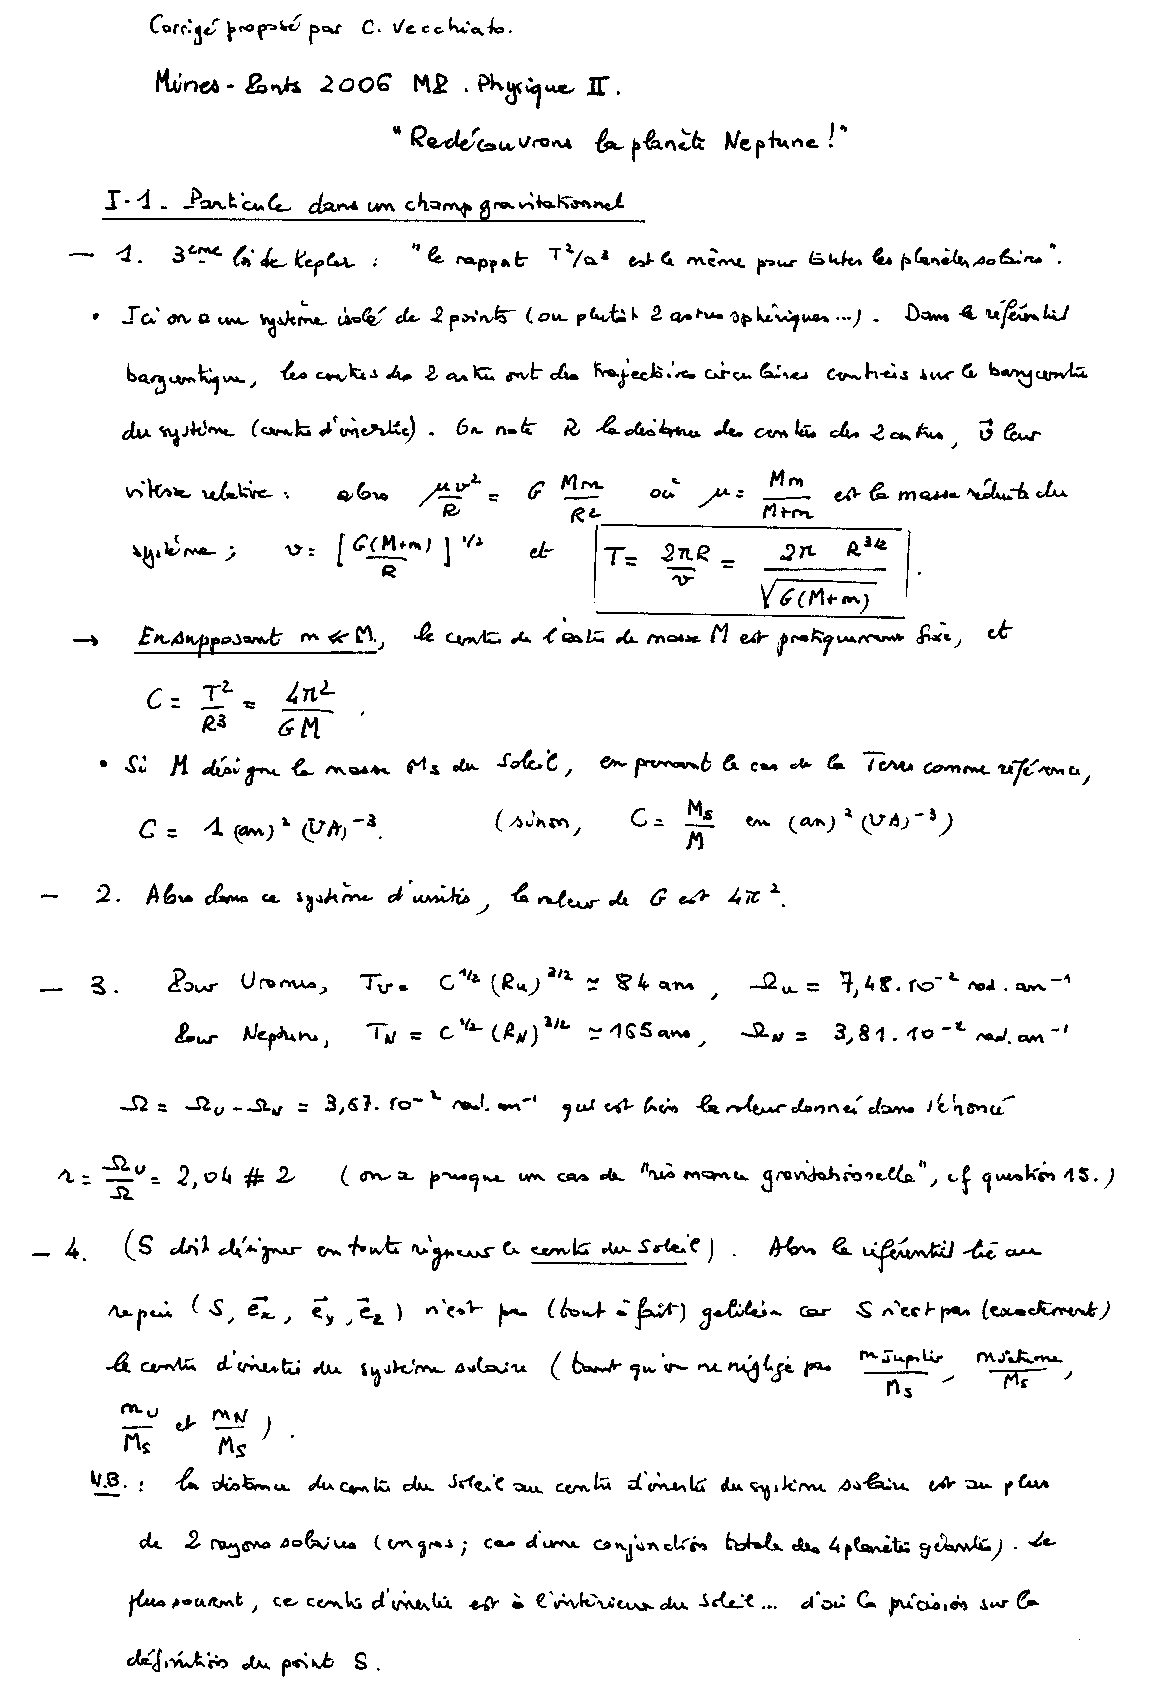 Corrigé proposé par C. Vecchiato.
Mines-Ponts 2006 MP. Physique II.
"Redécouvrons la planète Neptune!"
I-1. Particule dans un champ gravitationnel
- 1. 3ème loi de Kepler : "le rapport T²/a³ est le même pour toutes les planètes solaires".
• Ici on a un système isolé de 2 points (ou plutôt 2 astres sphériques...). Dans le référentiel
barycentrique, les centres des 2 astres ont des trajectoires circulaires centrées sur le barycentre
du système (centre d'inertie). On note R la distance des centres des 2 astres, v⃗ leur
vitesse relative : alors μv²/R = G Mm/R² où μ = Mm/(M+m) est la masse réduite du
système ; v = [G(M+m)/R]^1/2 et T = 2πR/v = 2π R^3/2 / √(G(M+m)) .
→ En supposant m ≪ M, le centre de l'astre de masse M est pratiquement fixe, et
C = T²/R³ = 4π²/GM .
• Si M désigne la masse Ms du Soleil, en prenant le cas de la Terre comme référence,
C = 1 (an)² (UA)^-3. (sinon, C = Ms/M en (an)² (UA)^-3)
- 2. Alors dans ce système d'unités, la valeur de G est 4π².
- 3. Pour Uranus, T_U = C^1/2 (R_U)^3/2 ≃ 84 ans, Ω_U = 7,48.10^-2 rad.an^-1
Pour Neptune, T_N = C^1/2 (R_N)^3/2 ≃ 165 ans, Ω_N = 3,81.10^-2 rad.an^-1
Ω = Ω_U - Ω_N = 3,67.10^-2 rad.an^-1 qui est bien la valeur donnée dans l'énoncé
r = Ω_U/Ω = 2,04 # 2 (on a presque un cas de "résonance gravitationnelle", cf question 15.)
- 4. (S doit désigner en toute rigueur le centre du Soleil). Alors le référentiel lié au
repère (S, e⃗x, e⃗y, e⃗z) n'est pas (tout à fait) galiléen car S n'est pas (exactement)
le centre d'inertie du système solaire (tant qu'on ne néglige pas mJupiter/Ms, mSaturne/Ms,
m_U/Ms et m_N/Ms ).
N.B. : la distance du centre du Soleil au centre d'inertie du système solaire est au plus
de 2 rayons solaires (en gros ; cas d'une conjonction totale des 4 planètes géantes). Le
plus souvent, ce centre d'inertie est à l'intérieur du Soleil... d'où la précision sur la
définition du point S.